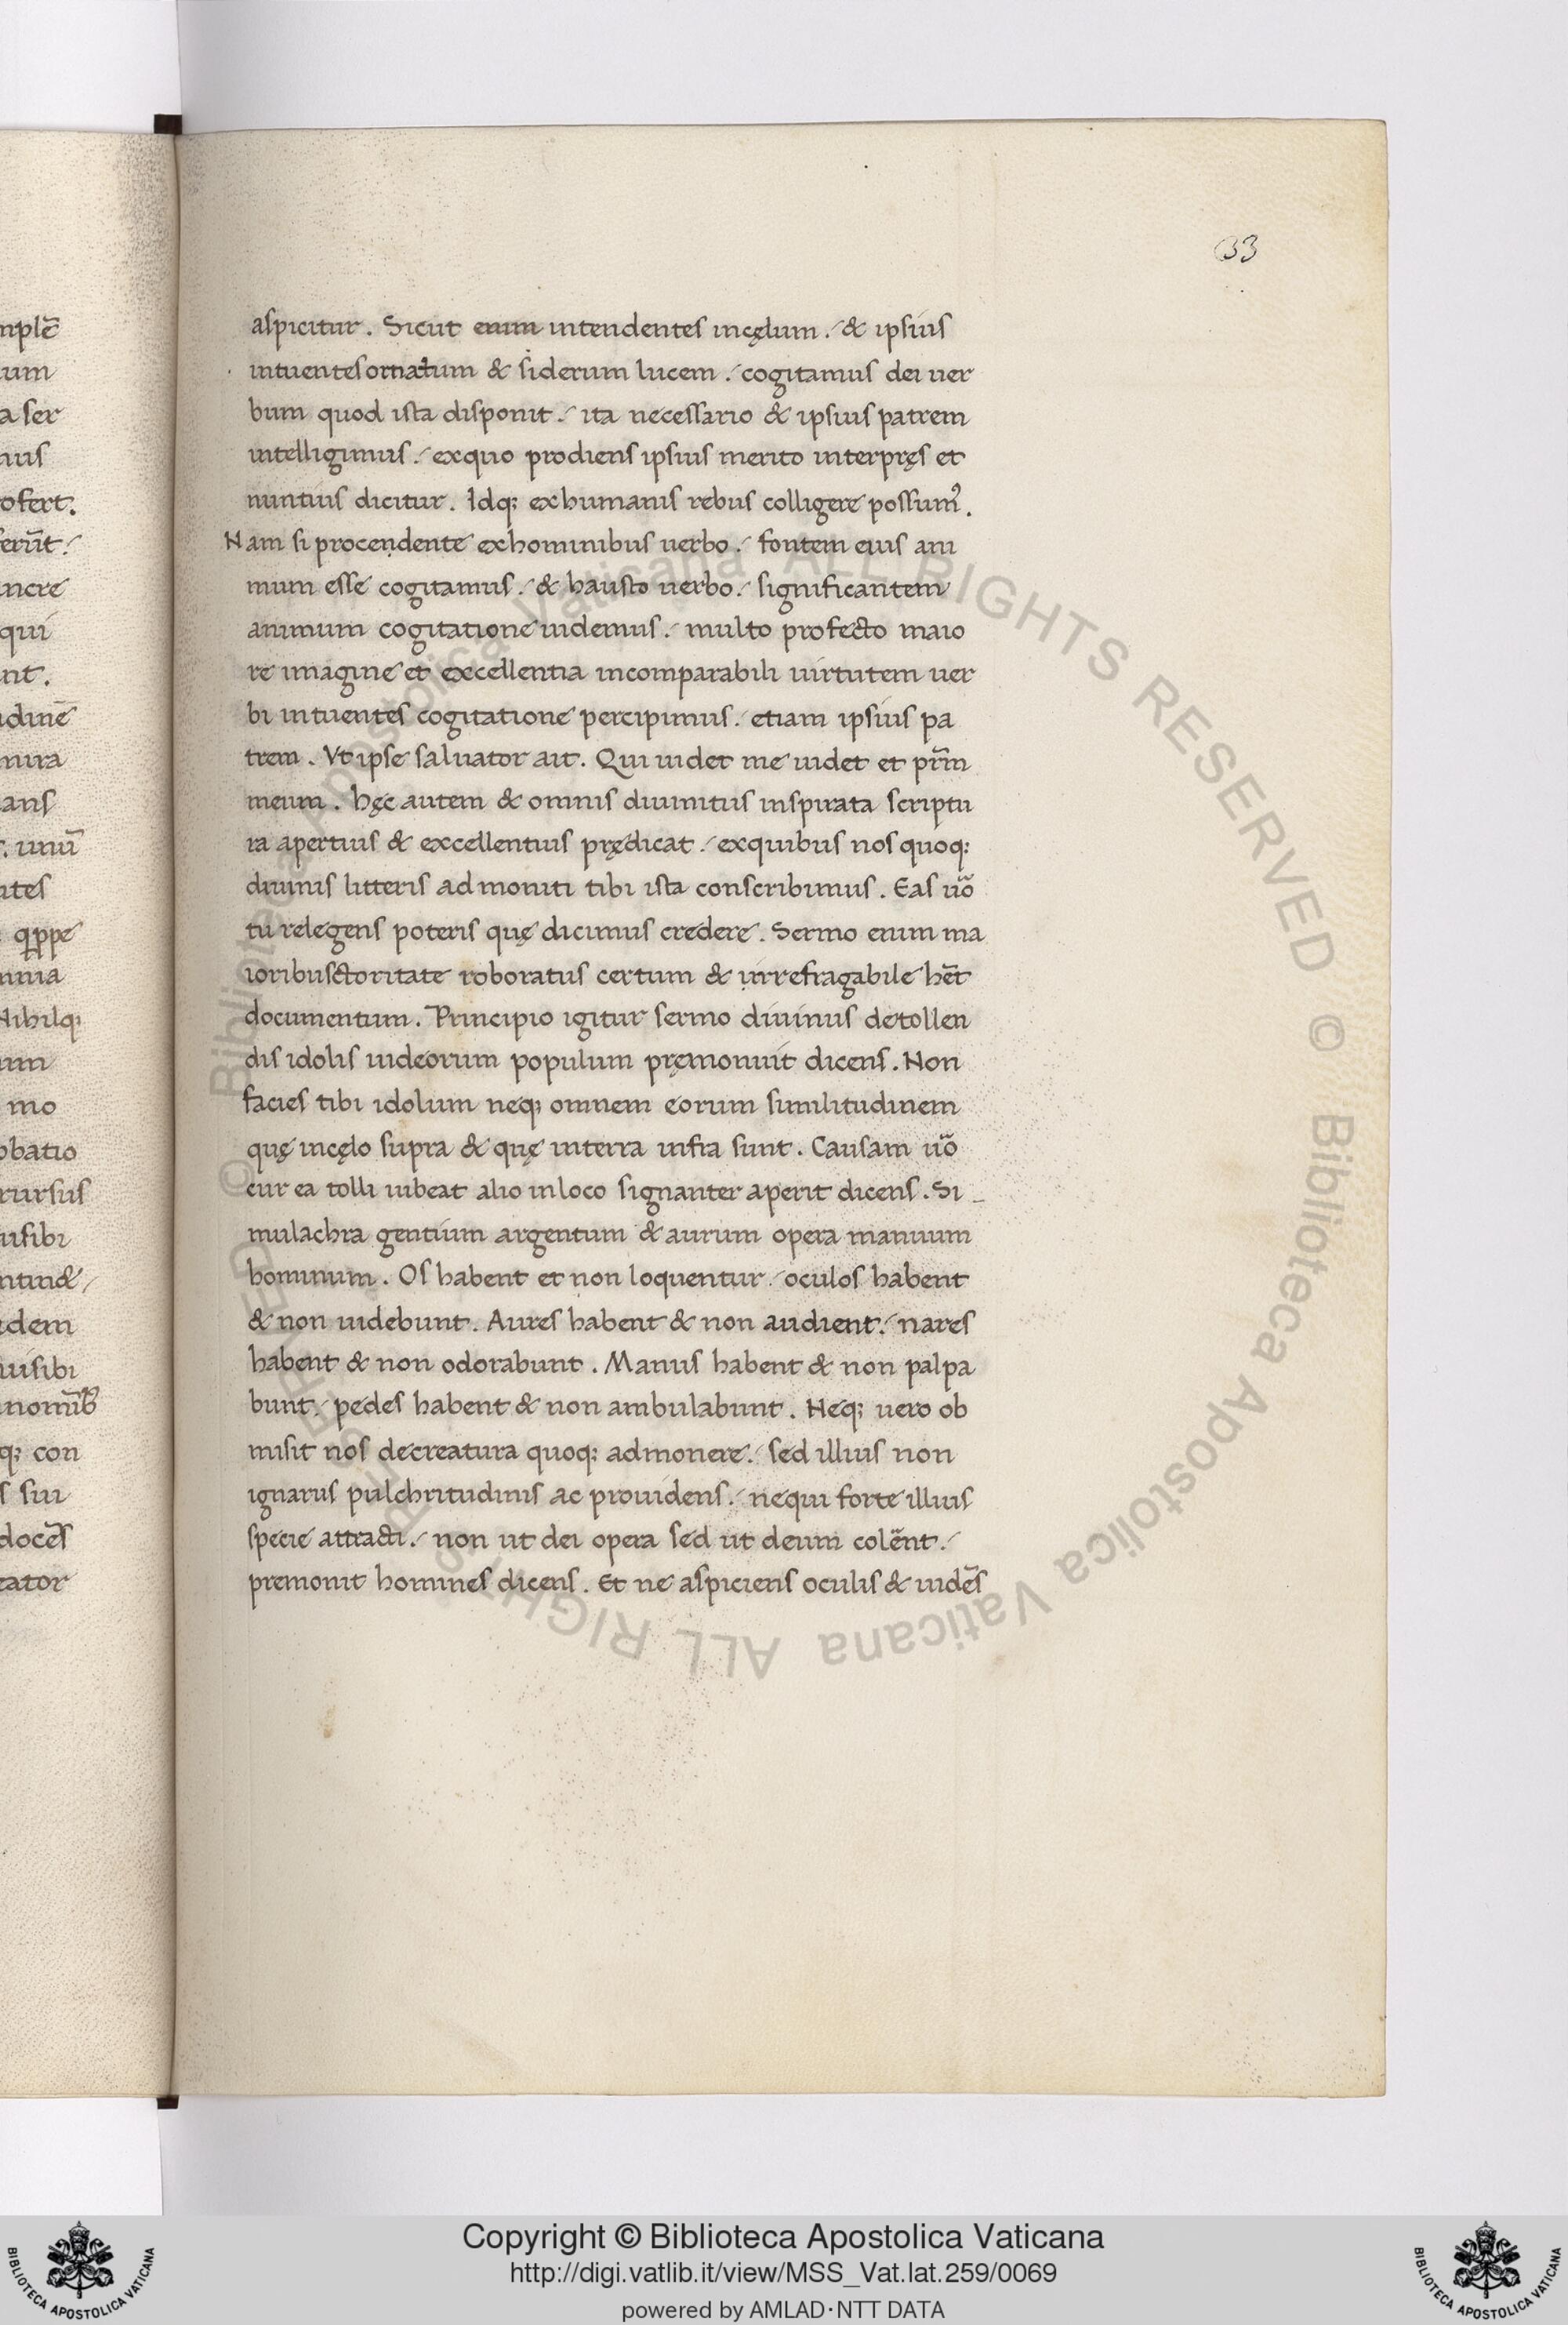 33
aspicitur. Sicut enim intendentes incęlum./ & ipsius
intuentes ornatum & siderum lucem./ cogitamus dei uer
bum quod ista disponit./ ita necessario & ipsius patrem
intelligimus./ exquo prodiens ipsius merito interpręs et
nuntius dicitur. Idq; exhumanis rebus colligere possum᾿.
Nam si procendente exhominibus uerbo./ fontem eius ani
mum esse cogitamus./ & hausto uerbo./ significantem
animum cogitatione uidemus./ multo profecto maio
re imagine et excellentia incomparabili uirtutem uer
bi intuentes cogitatione percipimus./ etiam ipsius pa
trem. Vt ipse saluator ait. Qui uidet me uidet et pr̄m
meum. hęc autem & omnis diuinitus inspirata scriptu
ra apertius & excellentius prędicat./ exquibus nos quoq;
diuinis litteris admoniti tibi ista conscribimus. Eas uō
tu relegens poteris quę dicimus credere. Sermo enim ma
ioribusctoritate roboratus certum & irrefragabile hēt
documentum. Principio igitur sermo diuinus detollen
dis idolis iudeorum populum pręmonuit dicens. Non
facies tibi idolum neq; omnem eorum similitudinem
quę incęlo supra & quę interra infra sunt. Causam uō
cur ea tolli iubeat alio inloco signanter aperit dicens. Si_
mulachra gentium argentum & aurum opera manuum
hominum. Os habent et non loquentur./ oculos habent
& non uidebunt. Aures habent & non audient./ nares
habent & non odorabunt. Manus habent & non palpa
bunt./ pedes habent & non ambulabunt. Neq; uero ob
misit nos decreatura quoq; admonere./ sed illius non
ignarus pulchritudinis ac prouidens./ nequi forte illius
specie attracti./ non ut dei opera sed ut deum colēnt./
premonit homines dicens. Et ne aspiciens oculis & uidēs
nplē
um
a ser
uus
ofert.
ferūt./
ncre
qui
nt.
idinē
mira
ans
. unū
ites
qppe
mnia
Nihilq;
um
mo
obatio
rursus
uisibi
ntind&/
dem
uisibi
q; con
s sui
docēs
eator
© Biblioteca Apostolica Vaticana ALL RIGHTS RESERVED © Biblioteca Apostolica Vaticana ALL RIGHTS RESERVED
Copyright © Biblioteca Apostolica Vaticana
http://digi.vatlib.it/view/MSS_Vat.lat.259/0069
powered by AMLAD·NTT DATA
BIBLIOTECA APOSTOLICA VATICANA
BIBLIOTECA APOSTOLICA VATICANA